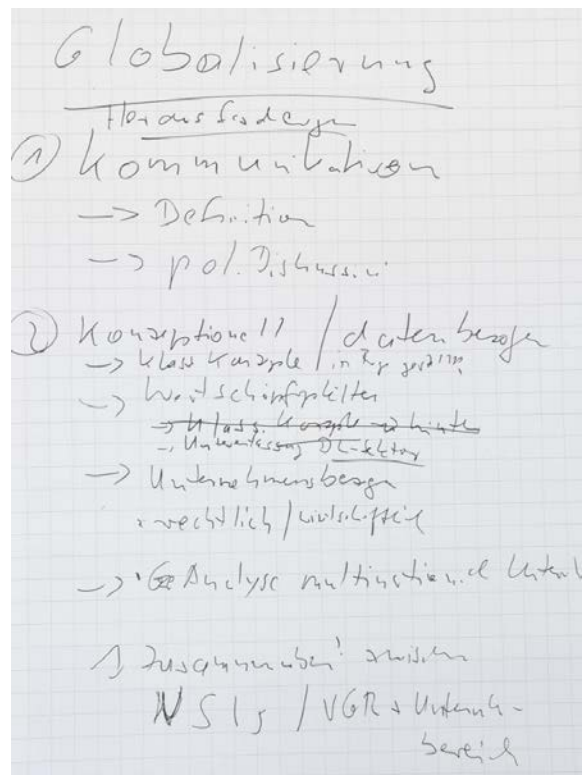 Globalisierung
Herausforderungen
① Kommunikation
-> Definition
-> pol. Diskussion
② Konzeptionell / datenbezogen
-> Klass Konzepte / in
-> Wertschöpfgsketten
-> Klass. Konzepte ->
-> Untererfassung DL-Sektor
-> Unternehmensbezogen
rechtlich / wirtschaftlich
-> Analyse multinational
1) Zusammenarbeit zwischen
NSIs / VGR + Unterneh-
bereich